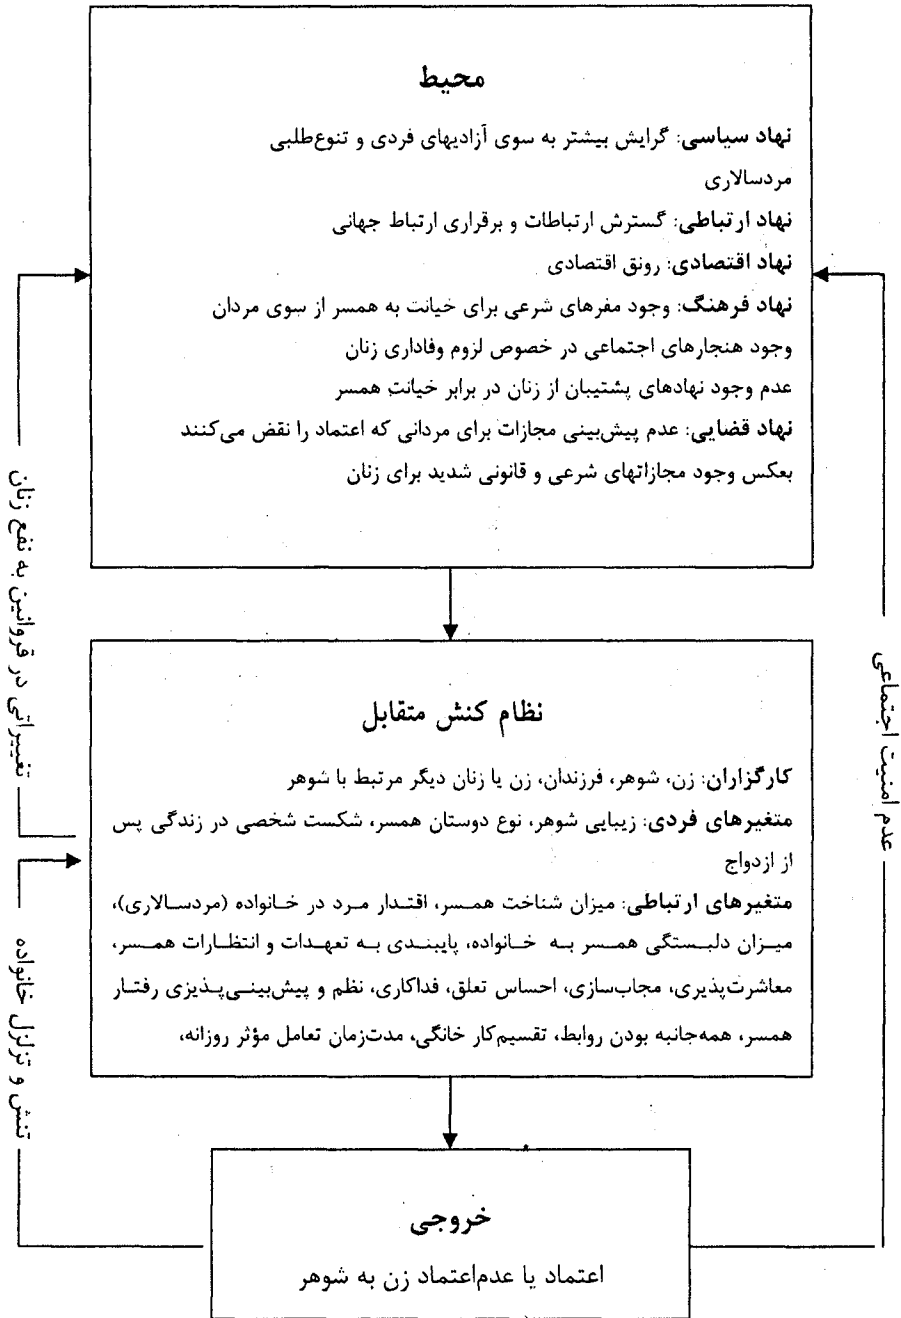 محیط
نهاد سیاسی: گرایش بیشتر به سوی آزادیهای فردی و تنوع‌طلبی
مردسالاری
نهاد ارتباطی: گسترش ارتباطات و برقراری ارتباط جهانی
نهاد اقتصادی: رونق اقتصادی
نهاد فرهنگ: وجود مفرهای شرعی برای خیانت به همسر از سوی مردان
وجود هنجارهای اجتماعی در خصوص لزوم وفاداری زنان
عدم وجود نهادهای پشتیبان از زنان در برابر خیانت همسر
نهاد قضایی: عدم پیش‌بینی مجازات برای مردانی که اعتماد را نقض می‌کنند
بعکس وجود مجازاتهای شرعی و قانونی شدید برای زنان
نظام کنش متقابل
کارگزاران: زن، شوهر، فرزندان، زن یا زنان دیگر مرتبط با شوهر
متغیرهای فردی: زیبایی شوهر، نوع دوستان همسر، شکست شخصی در زندگی پس
از ازدواج
متغیرهای ارتباطی: میزان شناخت همسر، اقتدار مرد در خانواده (مردسالاری)،
میزان دلبستگی همسر به خانواده، پایبندی به تعهدات و انتظارات همسر،
معاشرت‌پذیری، مجاب‌سازی، احساس تعلق، فداکاری، نظم و پیش‌بینی‌پذیزی رفتار
همسر، همه‌جانبه بودن روابط، تقسیم‌کار خانگی، مدت‌زمان تعامل مؤثر روزانه،
خروجی
اعتماد یا عدم‌اعتماد زن به شوهر
عدم امنیت اجتماعی
تغییراتی در قروانین به نفع زنان
تنش و تزلزل خانواده